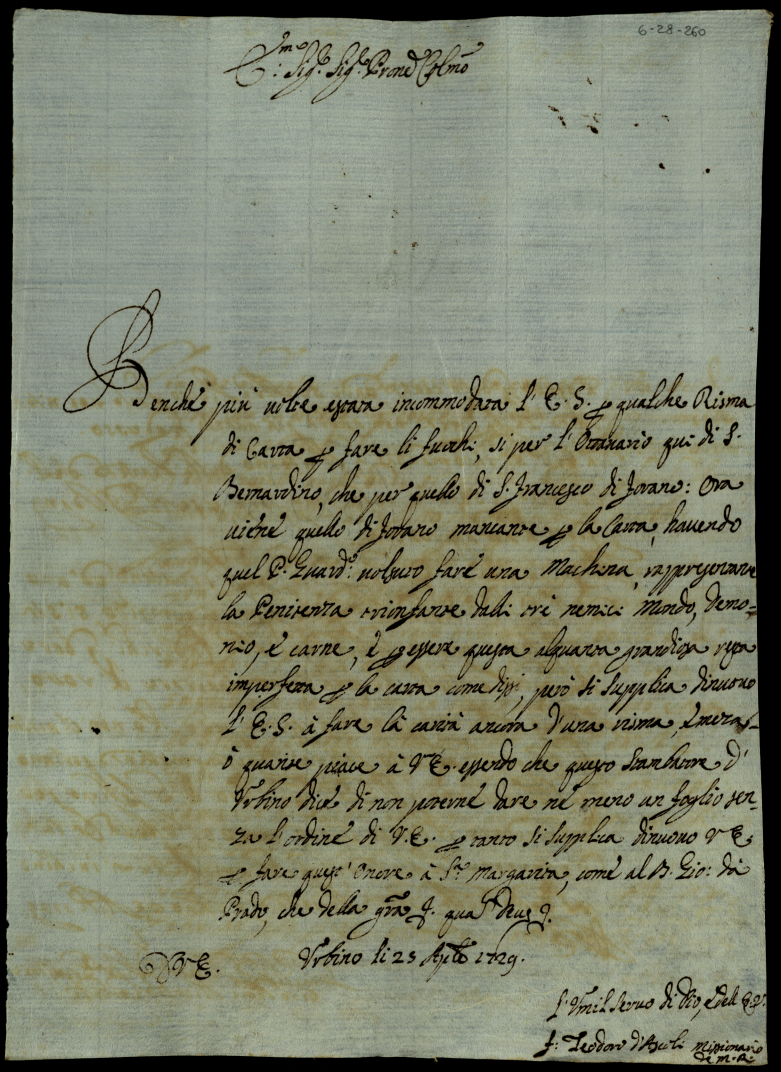 6-28-260
E.mo Sig.r Sig.r Prone Colmo
Benche più volte estata incommodata l' E. S. p qualche Risma
di Carta p fare li fuochi, si per l' Ottavario qui di S.
Bernardino, che per quello di S. Francesco di : Ora
viene quello di mancante p la Carta, havendo
quel P. Guard.o voluto fare una Machina, rappresentante
la Penitenza trionfante dalli tre nemici Mondo, Demo-
nio, e carne, e p essere questa alquanto grandiosa resta
imperfetta p la carta come dissi, però si supplica dinuovo
l' E. S. à fare la carità ancora d'una risma, e meza
ò quante piace à V E. essendo che questo Stampatore d'
Urbino dice di non poterne dare ne meno un foglio sen-
za l'ordine di V. E. p tanto si supplica dinuovo V E
p fare quest' Onore à S.ta Margarita, come al B. Gio: da
Prado, che della gra
D V E. Urbino li 23 Aple 1729.
L' Umil Servo di Dio, e dell E. V.
f: Teodoro d'Ascoli Missionario